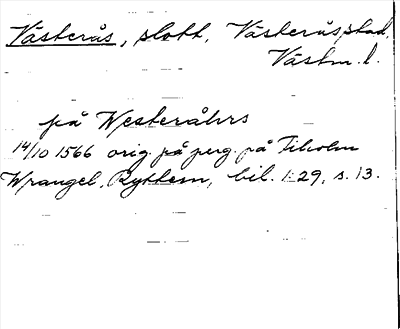 Västerås, slott, Västerås stad,
Västm. l.
på Westeråhrs
14/10 1566 orig. på perg. på Tikolm
Wrangel, Ryttern, bil. 1:29, s. 13.